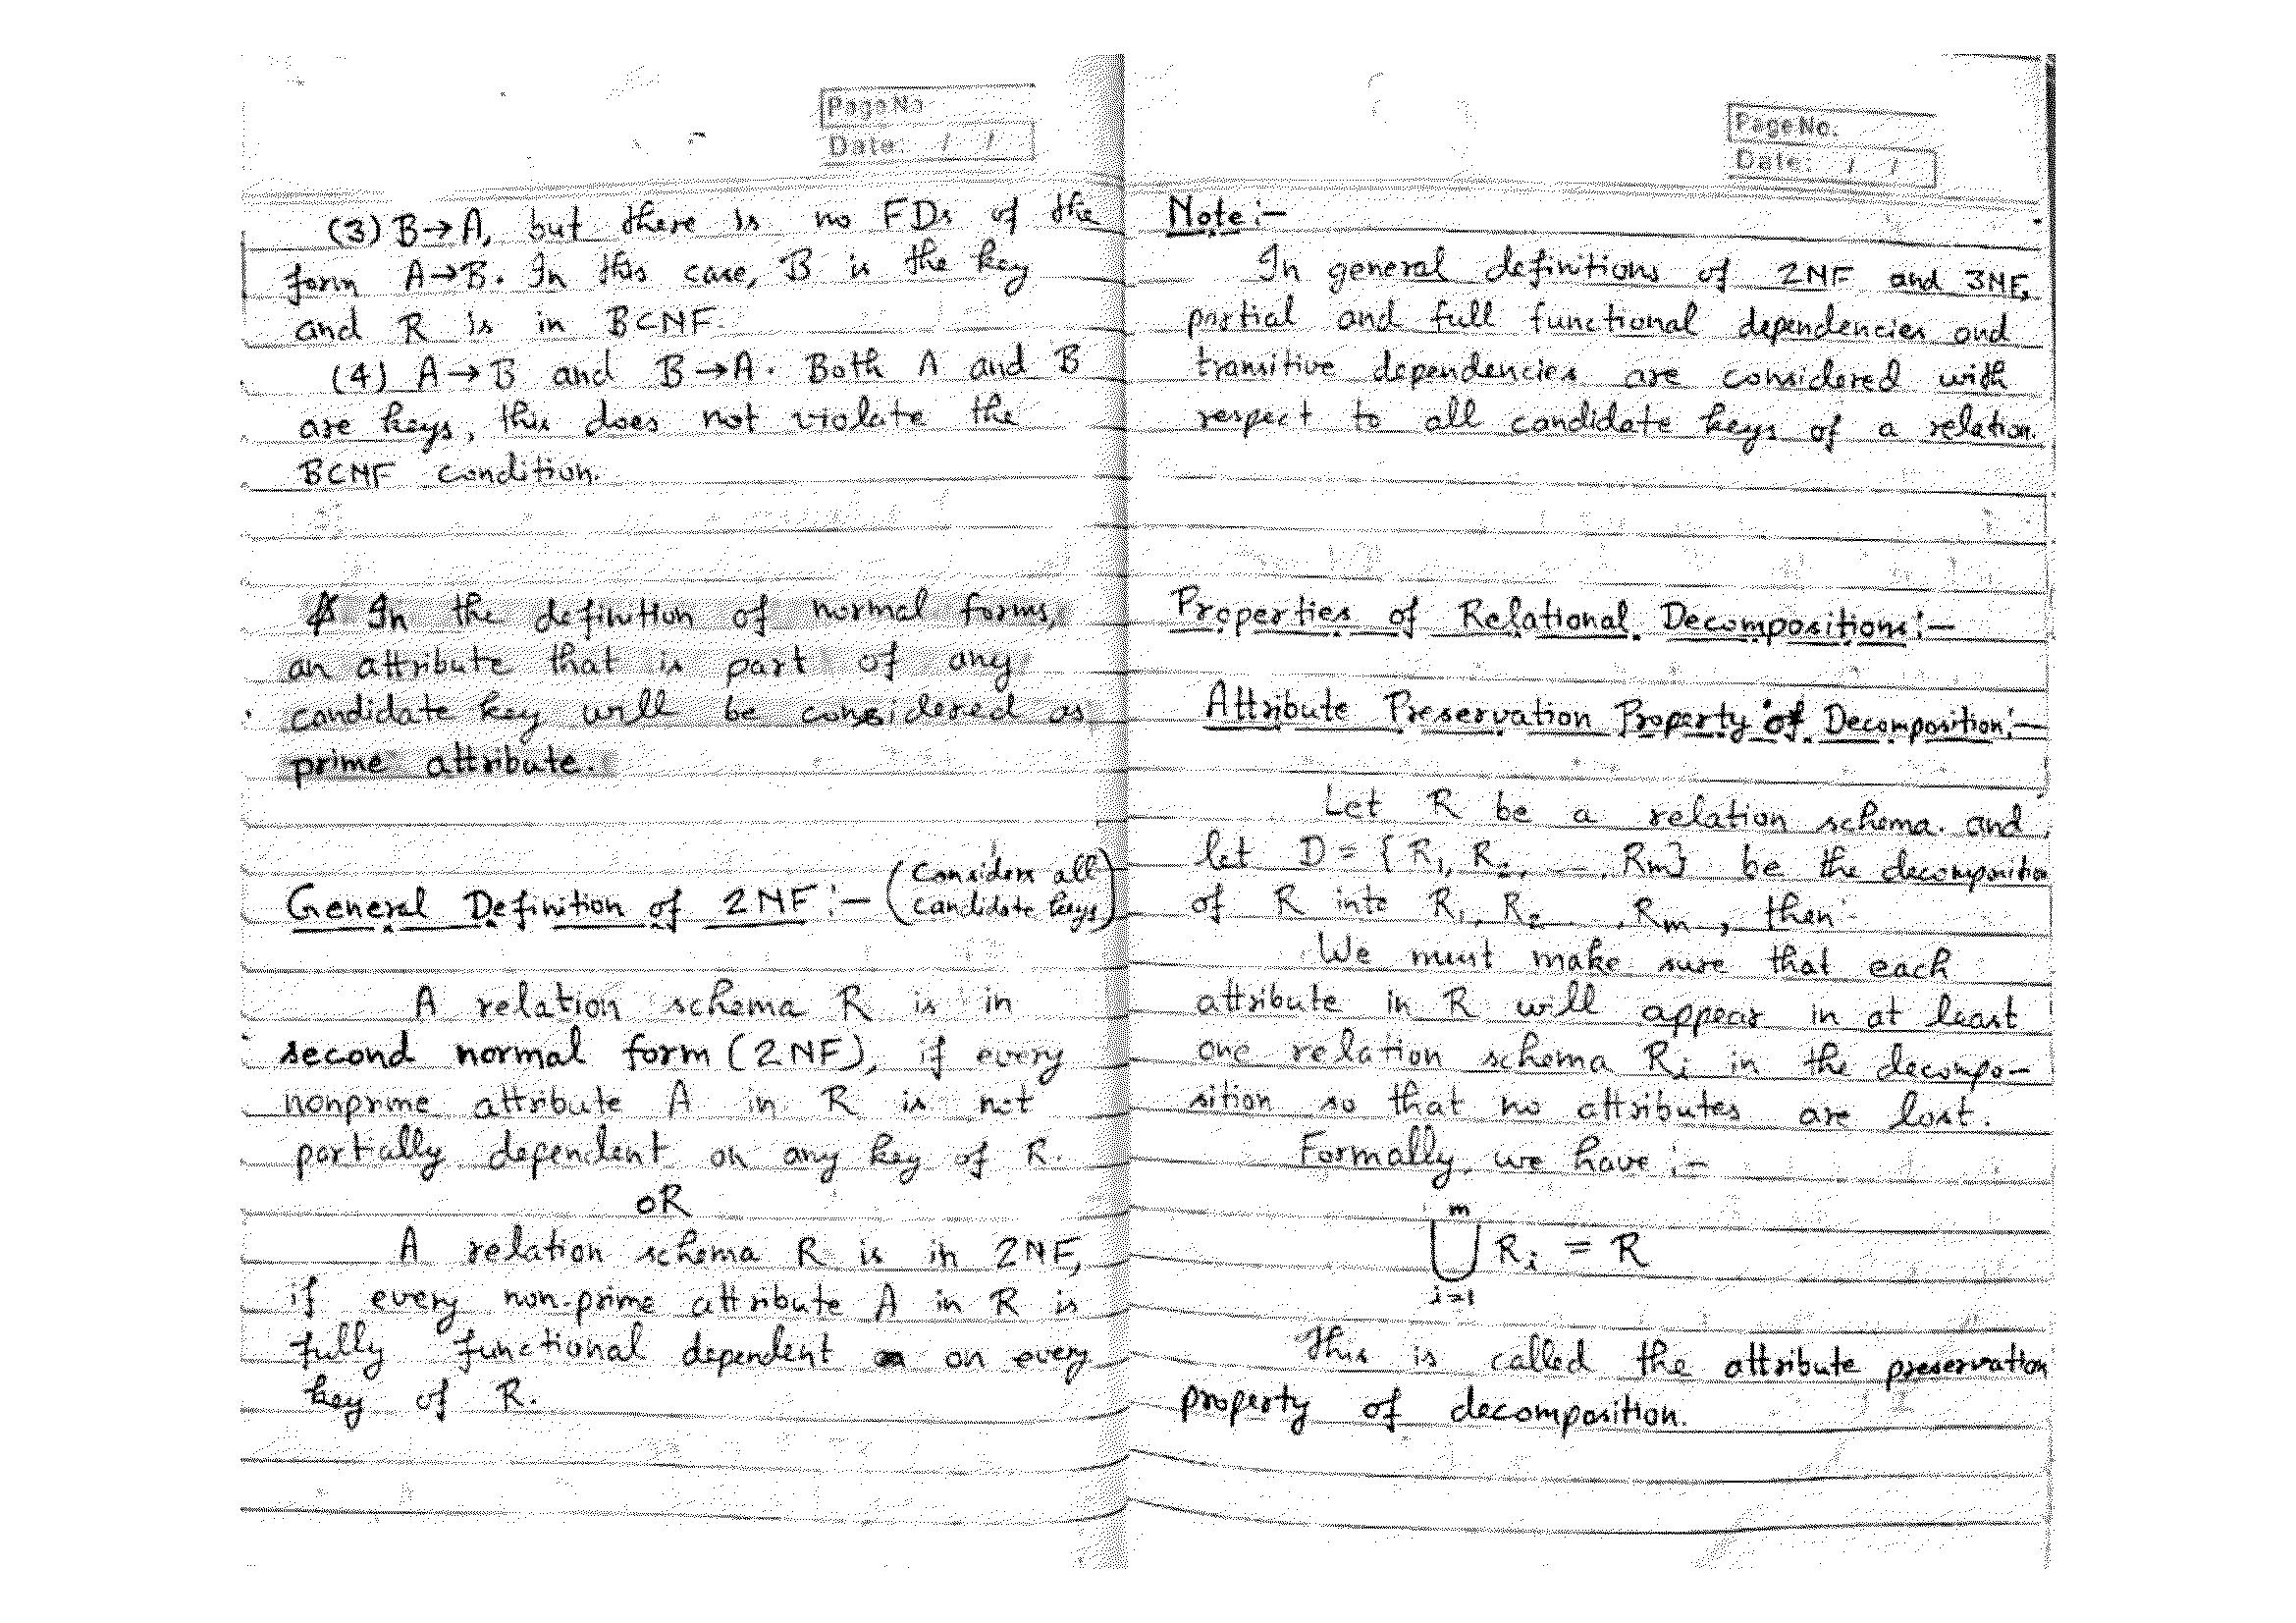 Page No
Date: / /
(3) B→A, but there is no FDs of the
form A→B. In this case, B is the key
and R is in BCNF.
(4) A→B and B→A. Both A and B
are keys, this does not violate the
BCNF condition.
In the definition of normal forms,
an attribute that is part of any
candidate key will be considered as
prime attribute.
General Definition of 2NF:- (Considers all
candidate keys)
A relation schema R is in
second normal form (2NF), if every
nonprime attribute A in R is not
partially dependent on any key of R.
OR
A relation schema R is in 2NF,
if every non-prime attribute A in R is
fully functional dependent on every
key of R.
Page No.
Date: / /
Note:-
In general definitions of 2NF and 3NF,
partial and full functional dependencies and
transitive dependencies are considered with
respect to all candidate keys of a relation.
Properties of Relational Decompositions:-
Attribute Preservation Property of Decomposition:-
Let R be a relation schema. and
let D = {R1, R2, ..., Rm} be the decomposition
of R into R1, R2 ..., Rm, then:-
We must make sure that each
attribute in R will appear in at least
one relation schema Ri in the decompo-
sition so that no attributes are lost.
Formally, we have :-
m
⋃ Ri = R
i=1
This is called the attribute preservation
property of decomposition.